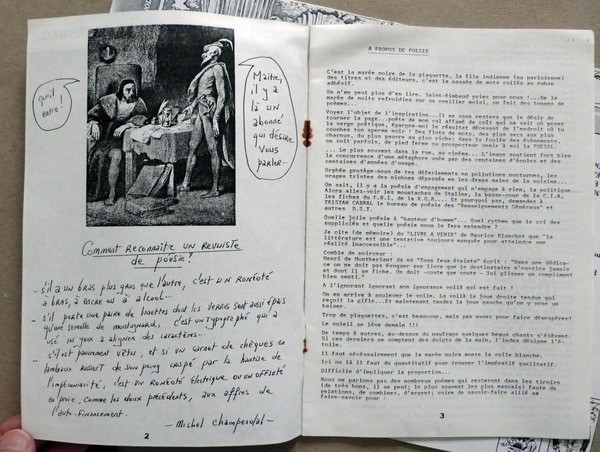 qu'il
entre !
Maître,
il y a
là UN
abonné
qui désire
vous
parler...
Comment reconnaître un revuiste
de poésie !
— s'il a un bras plus gros que l'autre, c'est UN RONÉOTÉ
à bras, à encre ou à alcool...
— s'il porte une paire de lunettes dont les verres sont aussi épais
qu'une semelle de montagnard, c'est un typographié qui a
usé ses yeux à aligner des caractères...
— s'il est pauvrement vêtu, et si un carnet de chèques en
lambeaux ressort de son poing crispé par la hantise de
l'impécuniosité, c'est un RONÉOTÉ électrique ou un OFFSETÉ
en proie, comme les deux précédents, aux affres de
l'auto-financement.
— Michel Champendal —
2
A PROPOS DE POESIE
C'est la marée noire de la plaquette, la file indienne (ou parisienne)
des titres et des éditeurs, c'est la nausée de mots collés au ruban
adhésif.
On n'en peut plus d'en lire. Saint-Rimbaud priez pour nous !...De la
marée de nuits refroidies sur un oreiller moisi, on fait des tonnes de
poèmes.
Voyez l'objet de l'inspiration...Il ne vous restera que le désir de
tourner la page...
... Le plus souvent dans la rue, au cinéma... L'image soutient fort bien
la concurrence d'une métaphore usée par des centaines d'écoles et des
centaines d'années d'usage.
Orphée protège-nous de tes déferlements en pollutions nocturnes, les
orages tristes des nichons dépassés en les draps sales de la voisine...
On sait, il y a la poésie d'engagement qui n'engage à rien, la politique...
Alors allez-voir les moustaches de Staline, la basse-cour de la C.I.A.
les fiches du F.B.I, de la K.G.B... Et pourquoi pas, demandez à
TRISTAN CABRAL le bureau de poésie des "Renseignements Généraux" et
autres D.S.T.
Quelle jolie poésie à "hauteur d'homme"... Quel rythme que le cri des
suppliciés et quelle poésie nous le fera entendre ?
Je cite (de mémoire) du "LIVRE A VENIR" de Maurice Blanchot que "la
littérature est une tentative toujours manquée pour atteindre une
réalité inaccessible"...
Comble de noirceur :
Henri de Montherlant de ses "Tous feux éteints" écrit : "Dans une dédica-
ce on ne doit pas évoquer son livre que le destinataire n'ouvrira jamais
et dont il se fiche. On doit -coûte que coûte- lui glisser un compliment
bien senti."
A l'ignorant ignorant son ignorance voilà qui est fait !
On en arrive à soulever le voile. Le voilà la joue droite tendue qui
reçoit la gifle...Et maintenant tendez la joue gauche qu'on y pose un
baiser.
Trop de plaquettes, c'est beaucoup, mais pas assez pour faire désespérer!
Le soleil se lève demain !!!
De temps à autre, au-dessus du naufrage quelques beaux chants s'élèvent.
Si ces derniers se comptent des doigts de la main, l'index désigne l'é-
toile.
Il faut nécésairement que la marée noire monte la voile blanche.
Ici on là il faut du quantitatif pour trouver l'impératif qualitatif.
Difficile d'impliquer la proportion...
Nous ne parlons pas des nombreux poèmes qui resteront dans les tiroirs
(de très bons, il se peut; le plus souvent les plus mauvais) faute de
relations, de combines, d'argent; voire de savoir-faire allié au
faire-savoir pour :
3